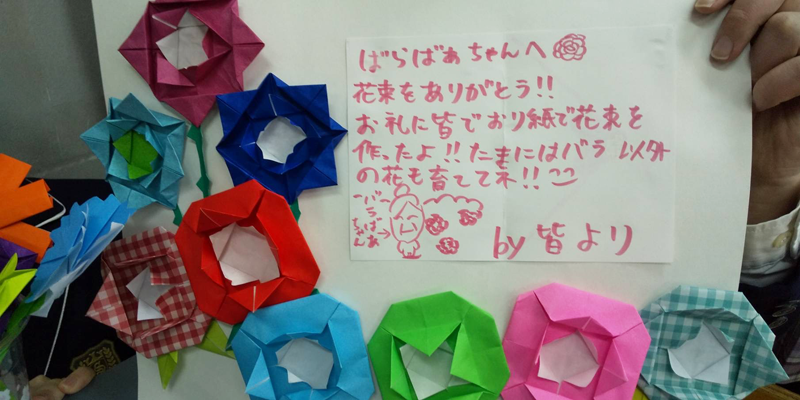 ばらばぁちゃんへ
花束をありがとう!!
お礼に皆でおり紙で花束を
作ったよ!!たまにはバラ以外
の花も育ててネ!!
バラばあちゃん→
by 皆より